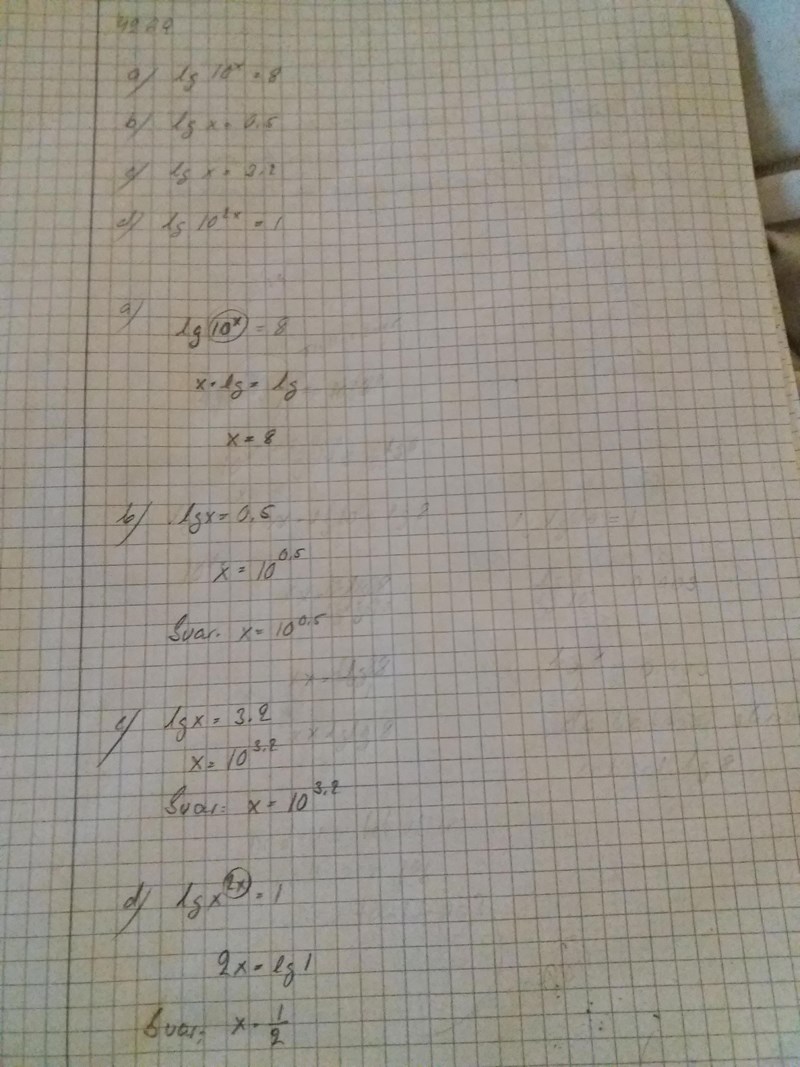 a) lg 10ˣ = 8
b) lg x = 0.5
c) lg x = 3.2
d) lg 10²ˣ = 1
a)
lg 10ˣ = 8
x · lg = lg
x = 8
b) lg x = 0.5
x = 10⁰·⁵
Svar: x = 10⁰·⁵
c) lg x = 3.2
x = 10³·²
Svar: x = 10³·²
d) lg x²ˣ = 1
2x = lg 1
Svar: x = 1/2